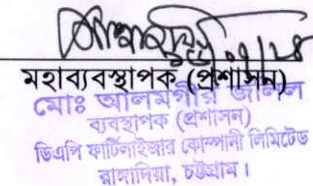 মহাব্যবস্থাপক (প্রশাসন)
মোঃ আলমগীর জলিল
ব্যবস্থাপক (প্রশাসন)
ডিএপি ফার্টিলাইজার কোম্পানী লিমিটেড
রাঙ্গাদিয়া, চট্টগ্রাম।